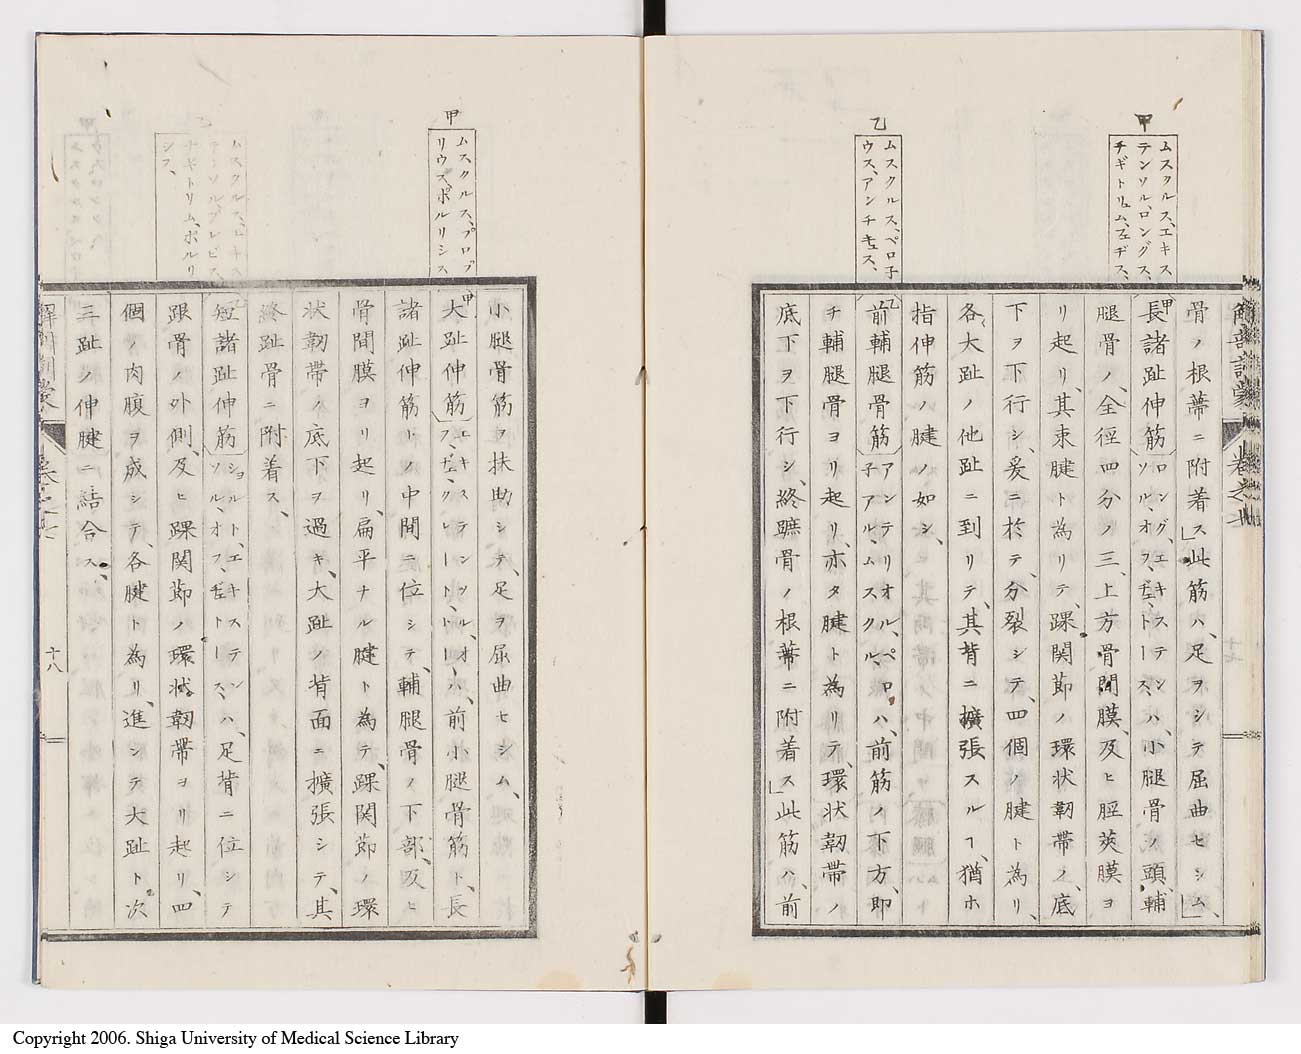 甲
ムスクルス、エキス
テンソル、ロングス、
チギトリュム、ヱヂス、
乙
ムスクルス、ペロ子
ウス、アンチキュス、
骨ノ根蒂ニ附着ス」此筋ハ、足ヲシテ屈曲セシム」
甲長諸趾伸筋ロング、エキステン、ソル、オフ、デ、トース、ハ、小腿骨ノ頭、輔
腿骨ノ、全徑四分ノ三、上方骨間膜、及ヒ脛莢膜ヨ
リ起リ、其末腱ト為リテ、踝関節ノ環状靱帯ノ、底
下ヲ下行シ、爰ニ於テ、分裂シテ、四個ノ腱ト為リ、
各大趾ノ他趾ニ到リテ、其背ニ擴張スルヿ、猶ホ
指伸筋ノ腱ノ如シ、
乙前輔腿骨筋アンテリオル、ペロ子アル、ムスクル、ハ、前筋ノ下方、即
チ輔腿骨ヨリ起リ、亦タ腱ト為リテ、環状靱帯ノ
底下ヲ下行シ、終蹠骨ノ根蒂ニ附着ス」此筋ハ、前
解剖訓蒙 卷之七
甲
ムスクルス、プロプ
リウス、ポルリシス
小腿骨筋ヲ扶助シテ、足ヲ屈曲セシム、
甲大趾伸筋エキステンソル、オフ、デ、グレート、トー、ハ、前小腿骨筋ト、長
諸趾伸筋トノ中間ニ位シテ、輔腿骨ノ下部、及ヒ
骨間膜ヨリ起リ、扁平ナル腱ト為テ、踝関節ノ環
状靱帯ノ底下ヲ過キ、大趾ノ背面ニ擴張シテ、其
終趾骨ニ附着ス、
乙短諸趾伸筋ショルト、エキステンソル、オフ、デ、トース、ハ、足背ニ位シテ
跟骨ノ外側、及ヒ踝関節ノ環状靱帯ヨリ起リ、四
個ノ肉腹ヲ成シテ、各腱ト為リ、進ンテ大趾ト次
三趾ノ伸腱ニ結合ス、
乙
ムスクルス、エキス
テンソル、ブレビス、
ナギトリム、ポルリ
シス、
解剖訓蒙 卷之七
十八
Copyright 2006. Shiga University of Medical Science Library